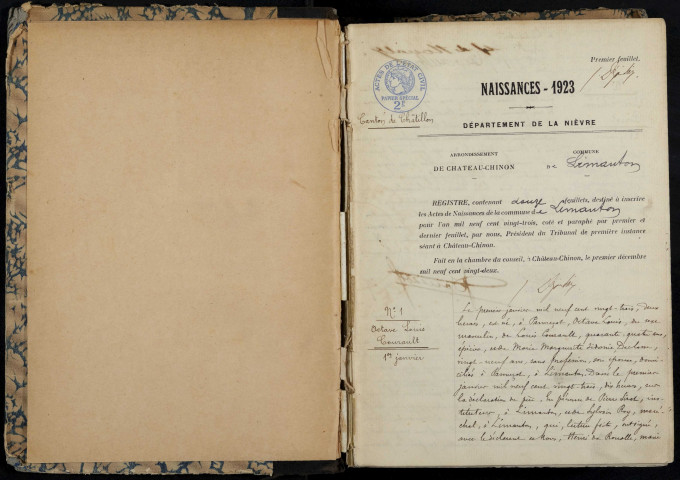 Premier feuillet.
ACTES DE L'ETAT CIVIL
PAPIER SPÉCIAL
2F
NAISSANCES - 1923
Canton de Châtillon
DÉPARTEMENT DE LA NIÈVRE
ARRONDISSEMENT
COMMUNE
DE CHATEAU-CHINON
DE Limanton
REGISTRE, contenant douze feuillets, destiné à inscrire
les Actes de Naissances de la commune de Limanton
pour l'an mil neuf cent vingt-trois, coté et paraphé par premier et
dernier feuillet, par nous, Président du Tribunal de première instance
séant à Château-Chinon.
Fait en la chambre du conseil, à Château-Chinon, le premier décembre
mil neuf cent vingt-deux.
N° 1
Octave Louis
1er janvier
Le premier janvier mil neuf cent vingt-trois, deux
heures, est né, à Octave Louis, du sexe
masculin, de Louis quarante
épicier, et de Marie Marguerite
vingt-neuf ans, sans profession, son épouse, domi-
ciliés à à Limanton. Dressé le premier
janvier mil neuf cent vingt-trois, dix heures, sur
la déclaration du père. En présence de Pierre insti-
tuteur, à Limanton, et de Sylvain Roy, maré-
chal, à Limanton, qui, lecture faite, ont signé,
avec le déclarant et Nous, maire